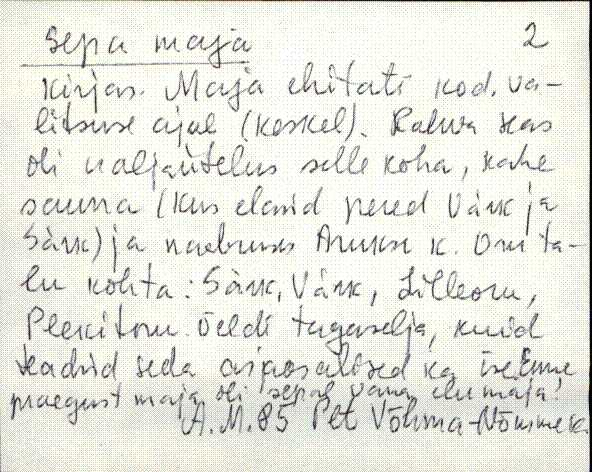 Sepa maja 2
kirjas. Maja ehitati kod. va-
litsuse ajal (keskel). Rahva seas
oli naljaütelus selle koha, kahe
sauna (kus elasid pered Vänk ja
Sänk) ja naabruses Aruksu k. Oru ta-
lu kohta: Sänk, Vänk, Lilleoru,
Plekitoru. Öeldi tagaselja, kuid
teadsid seda asjaosalised ka ise. Enne
praegust maja oli sepal vana elumaja!
A.M. 85 Plt Võhma-Nõmme k.